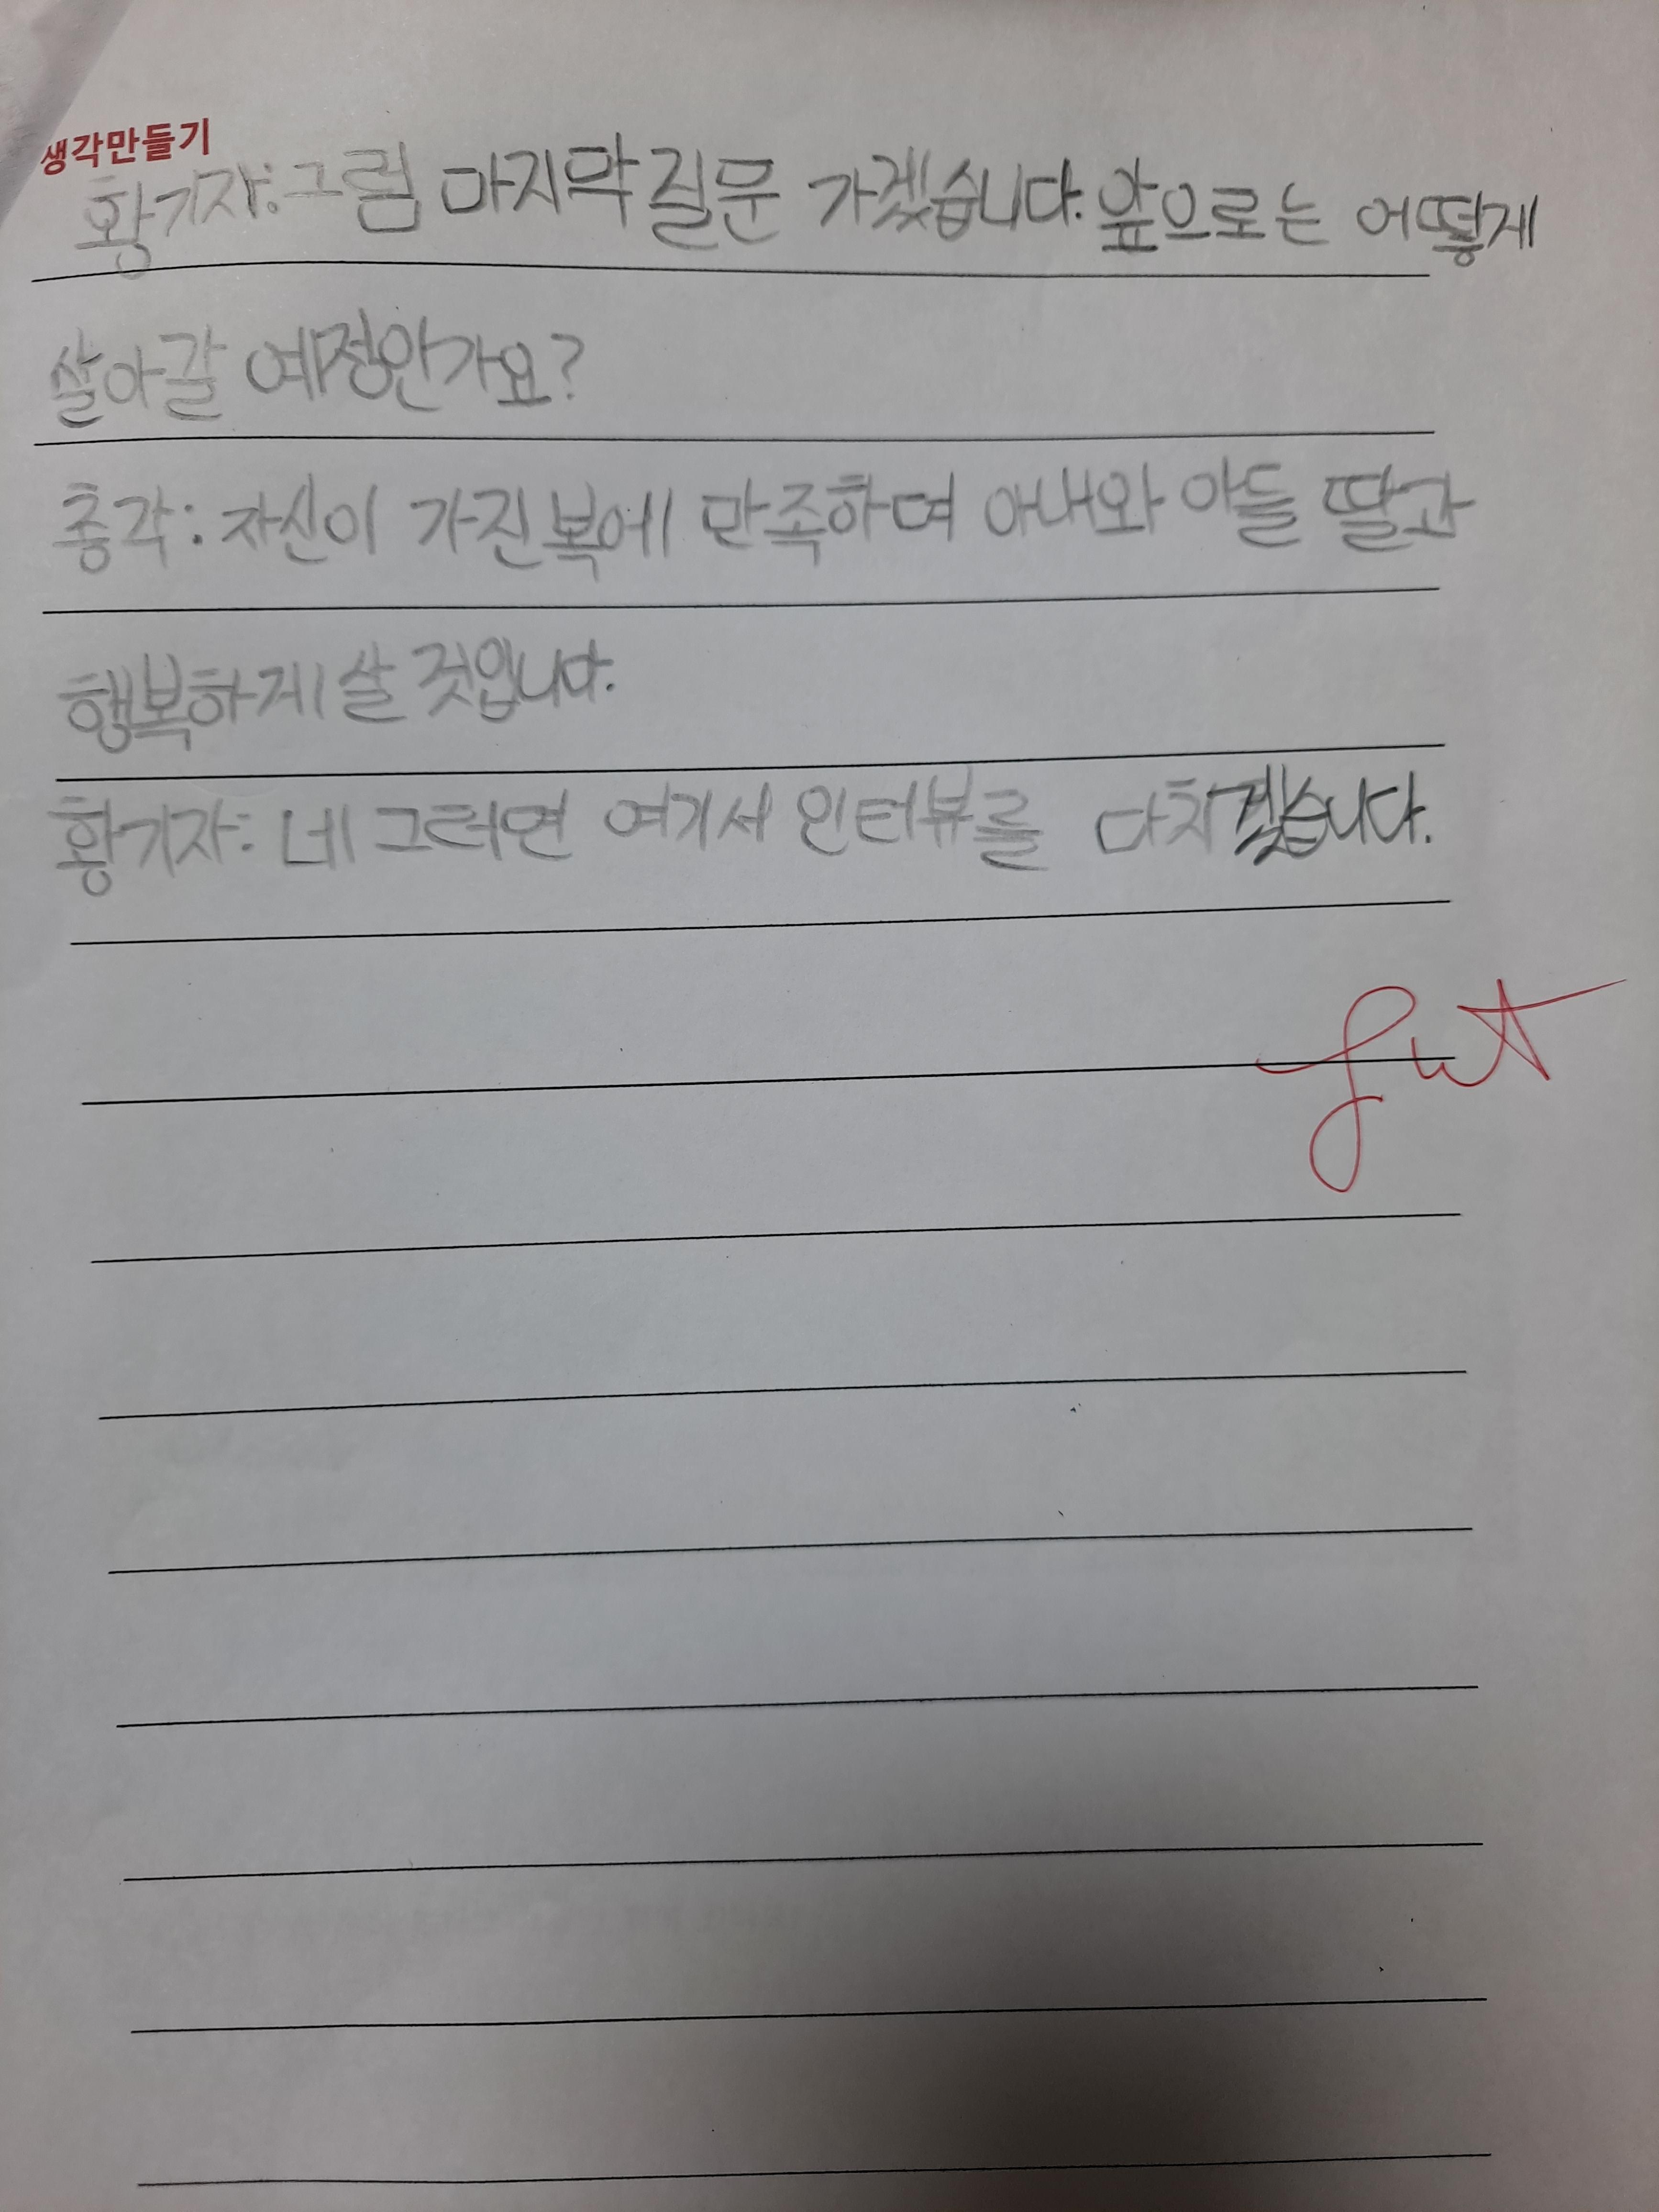 생각만들기
황기자: 그럼 마지막 질문 가겠습니다. 앞으로는 어떻게
살아갈 예정인가요?
총각: 자신이 가진 복에 만족하며 아내와 아들 딸과
행복하게 살 것입니다.
황기자: 네 그러면 여기서 인터뷰를 마치겠습니다.